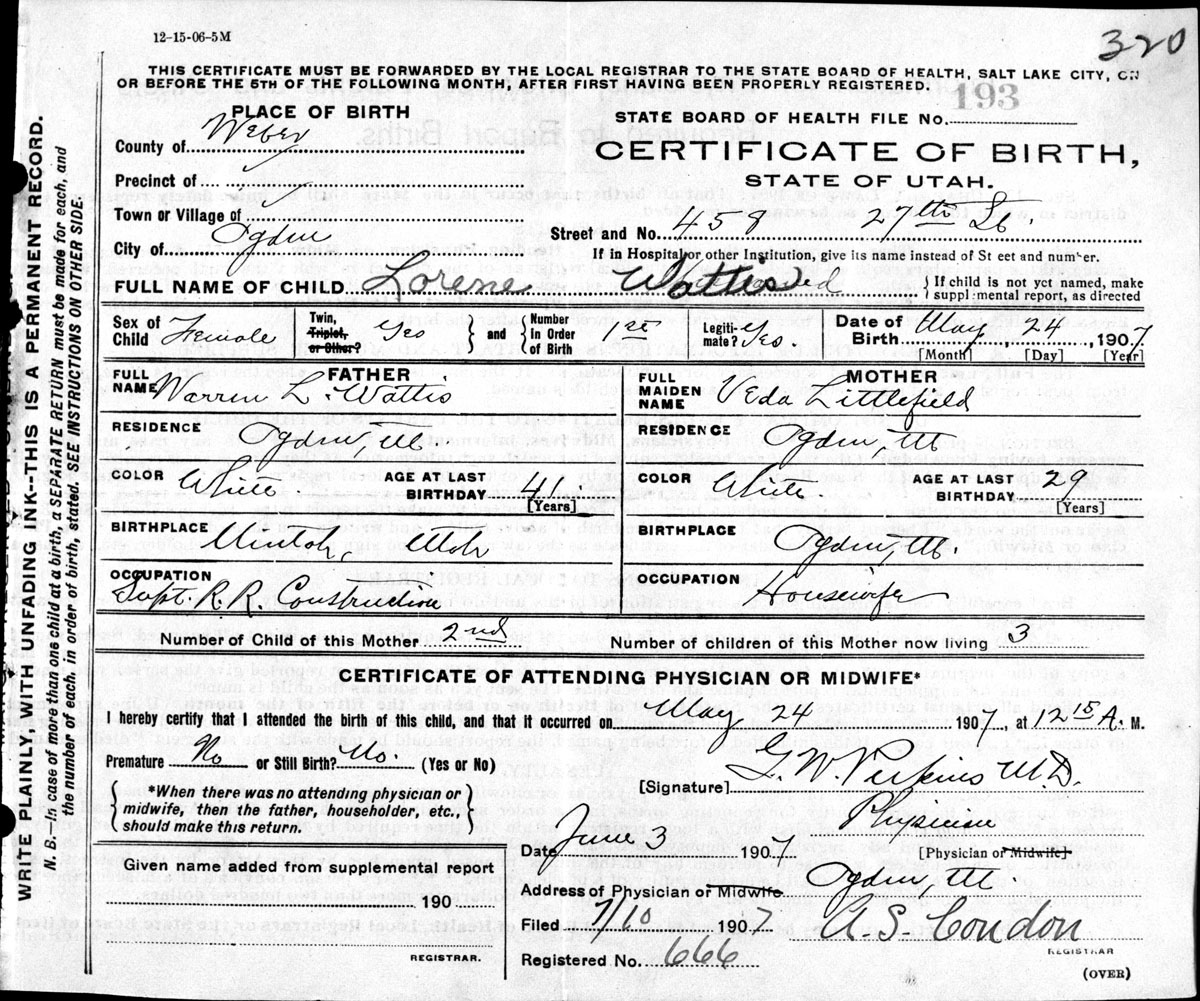 12-15-06-5M
320
THIS CERTIFICATE MUST BE FORWARDED BY THE LOCAL REGISTRAR TO THE STATE BOARD OF HEALTH, SALT LAKE CITY, ON
OR BEFORE THE 5TH OF THE FOLLOWING MONTH, AFTER FIRST HAVING BEEN PROPERLY REGISTERED.
193
PLACE OF BIRTH
STATE BOARD OF HEALTH FILE No.
County of Weber
CERTIFICATE OF BIRTH,
Precinct of
STATE OF UTAH.
Town or Village of
Street and No. 458 27th St.
City of Ogden
If in Hospital or other Institution, give its name instead of St eet and number.
FULL NAME OF CHILD Lorene Wattis
If child is not yet named, make
suppl mental report, as directed
Sex of Child Female
Twin, Triplet, or Other? Yes and Number In Order of Birth 1st
Legitimate? Yes.
Date of Birth May 24 1907
[Month] [Day] [Year]
FATHER
FULL NAME Warren L. Wattis
RESIDENCE Ogden, Ut.
COLOR White AGE AT LAST BIRTHDAY 41
[Years]
BIRTHPLACE Uintah, Utah
OCCUPATION Supt. R.R. Construction
MOTHER
FULL MAIDEN NAME Veda Littlefield
RESIDENCE Ogden, Ut
COLOR White. AGE AT LAST BIRTHDAY 29
[Years]
BIRTHPLACE Ogden, Ut.
OCCUPATION Housewife
Number of Child of this Mother 2nd
Number of children of this Mother now living 3
CERTIFICATE OF ATTENDING PHYSICIAN OR MIDWIFE*
I hereby certify that I attended the birth of this child, and that it occurred on May 24 1907, at 12 15 A. M.
Premature No or Still Birth? No. (Yes or No)
[Signature] G. W. Perkins M.D.
*When there was no attending physician or
midwife, then the father, householder, etc.,
should make this return.
Physician
Date June 3 1907
[Physician or Midwife]
Given name added from supplemental report
190
REGISTRAR.
Address of Physician or Midwife. Ogden, Ut.
Filed 7/10 1907
A. S. Condon
REGISTRAR
Registered No. 666
(OVER)
WRITE PLAINLY WITH UNFADING INK--THIS IS A PERMANENT RECORD.
N. B.—In case of more than one child at a birth, a SEPARATE RETURN must be made for each, and
the number of each, in order of birth, stated. SEE INSTRUCTIONS ON OTHER SIDE.